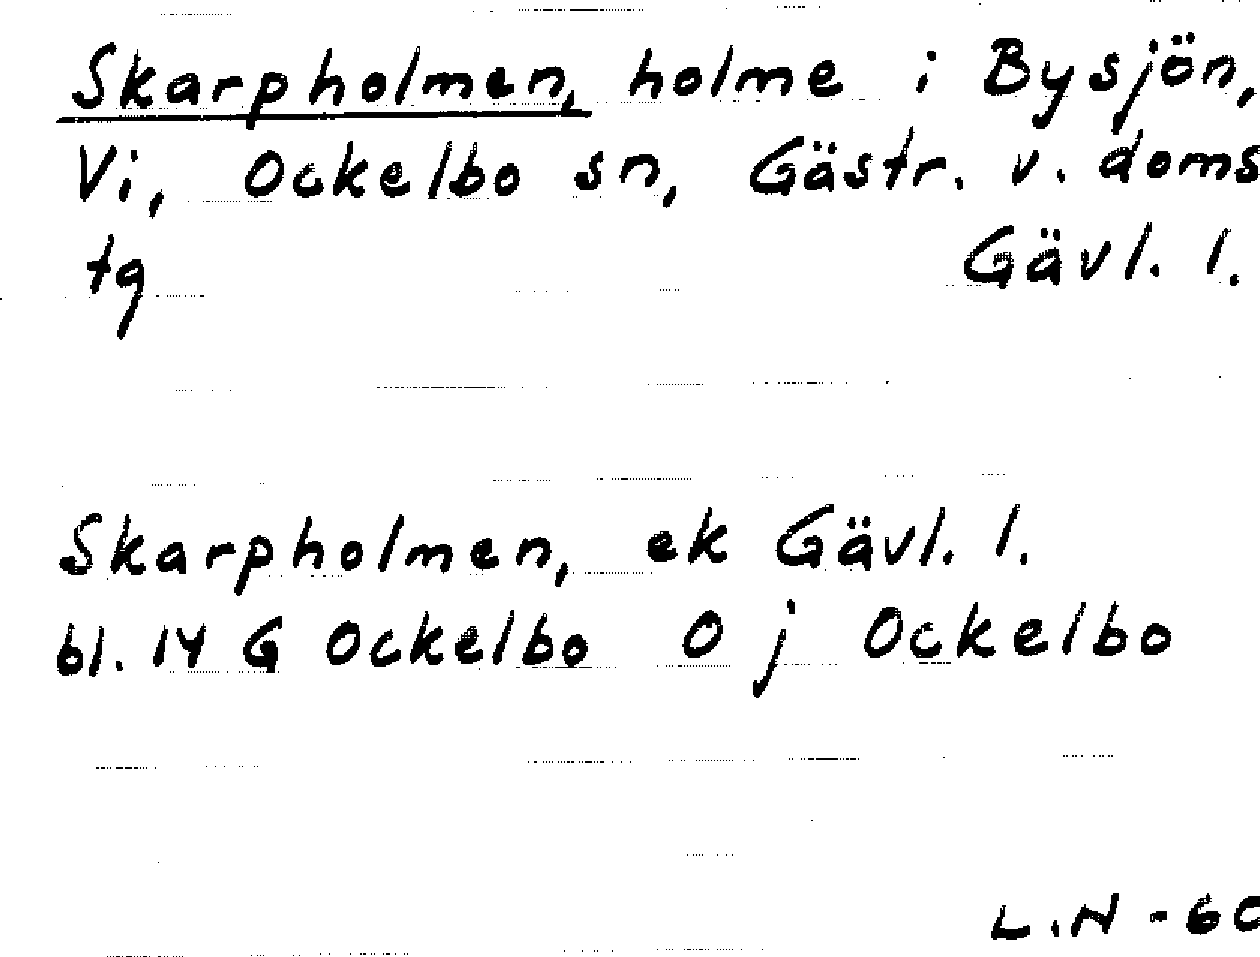 Skarpholmen, holme i Bysjön,
Vi, Ockelbo sn, Gästr. v. doms
tg Gävl. l.
Skarpholmen, ek Gävl. l.
bl. 14 G Ockelbo O j Ockelbo
L.N - 60